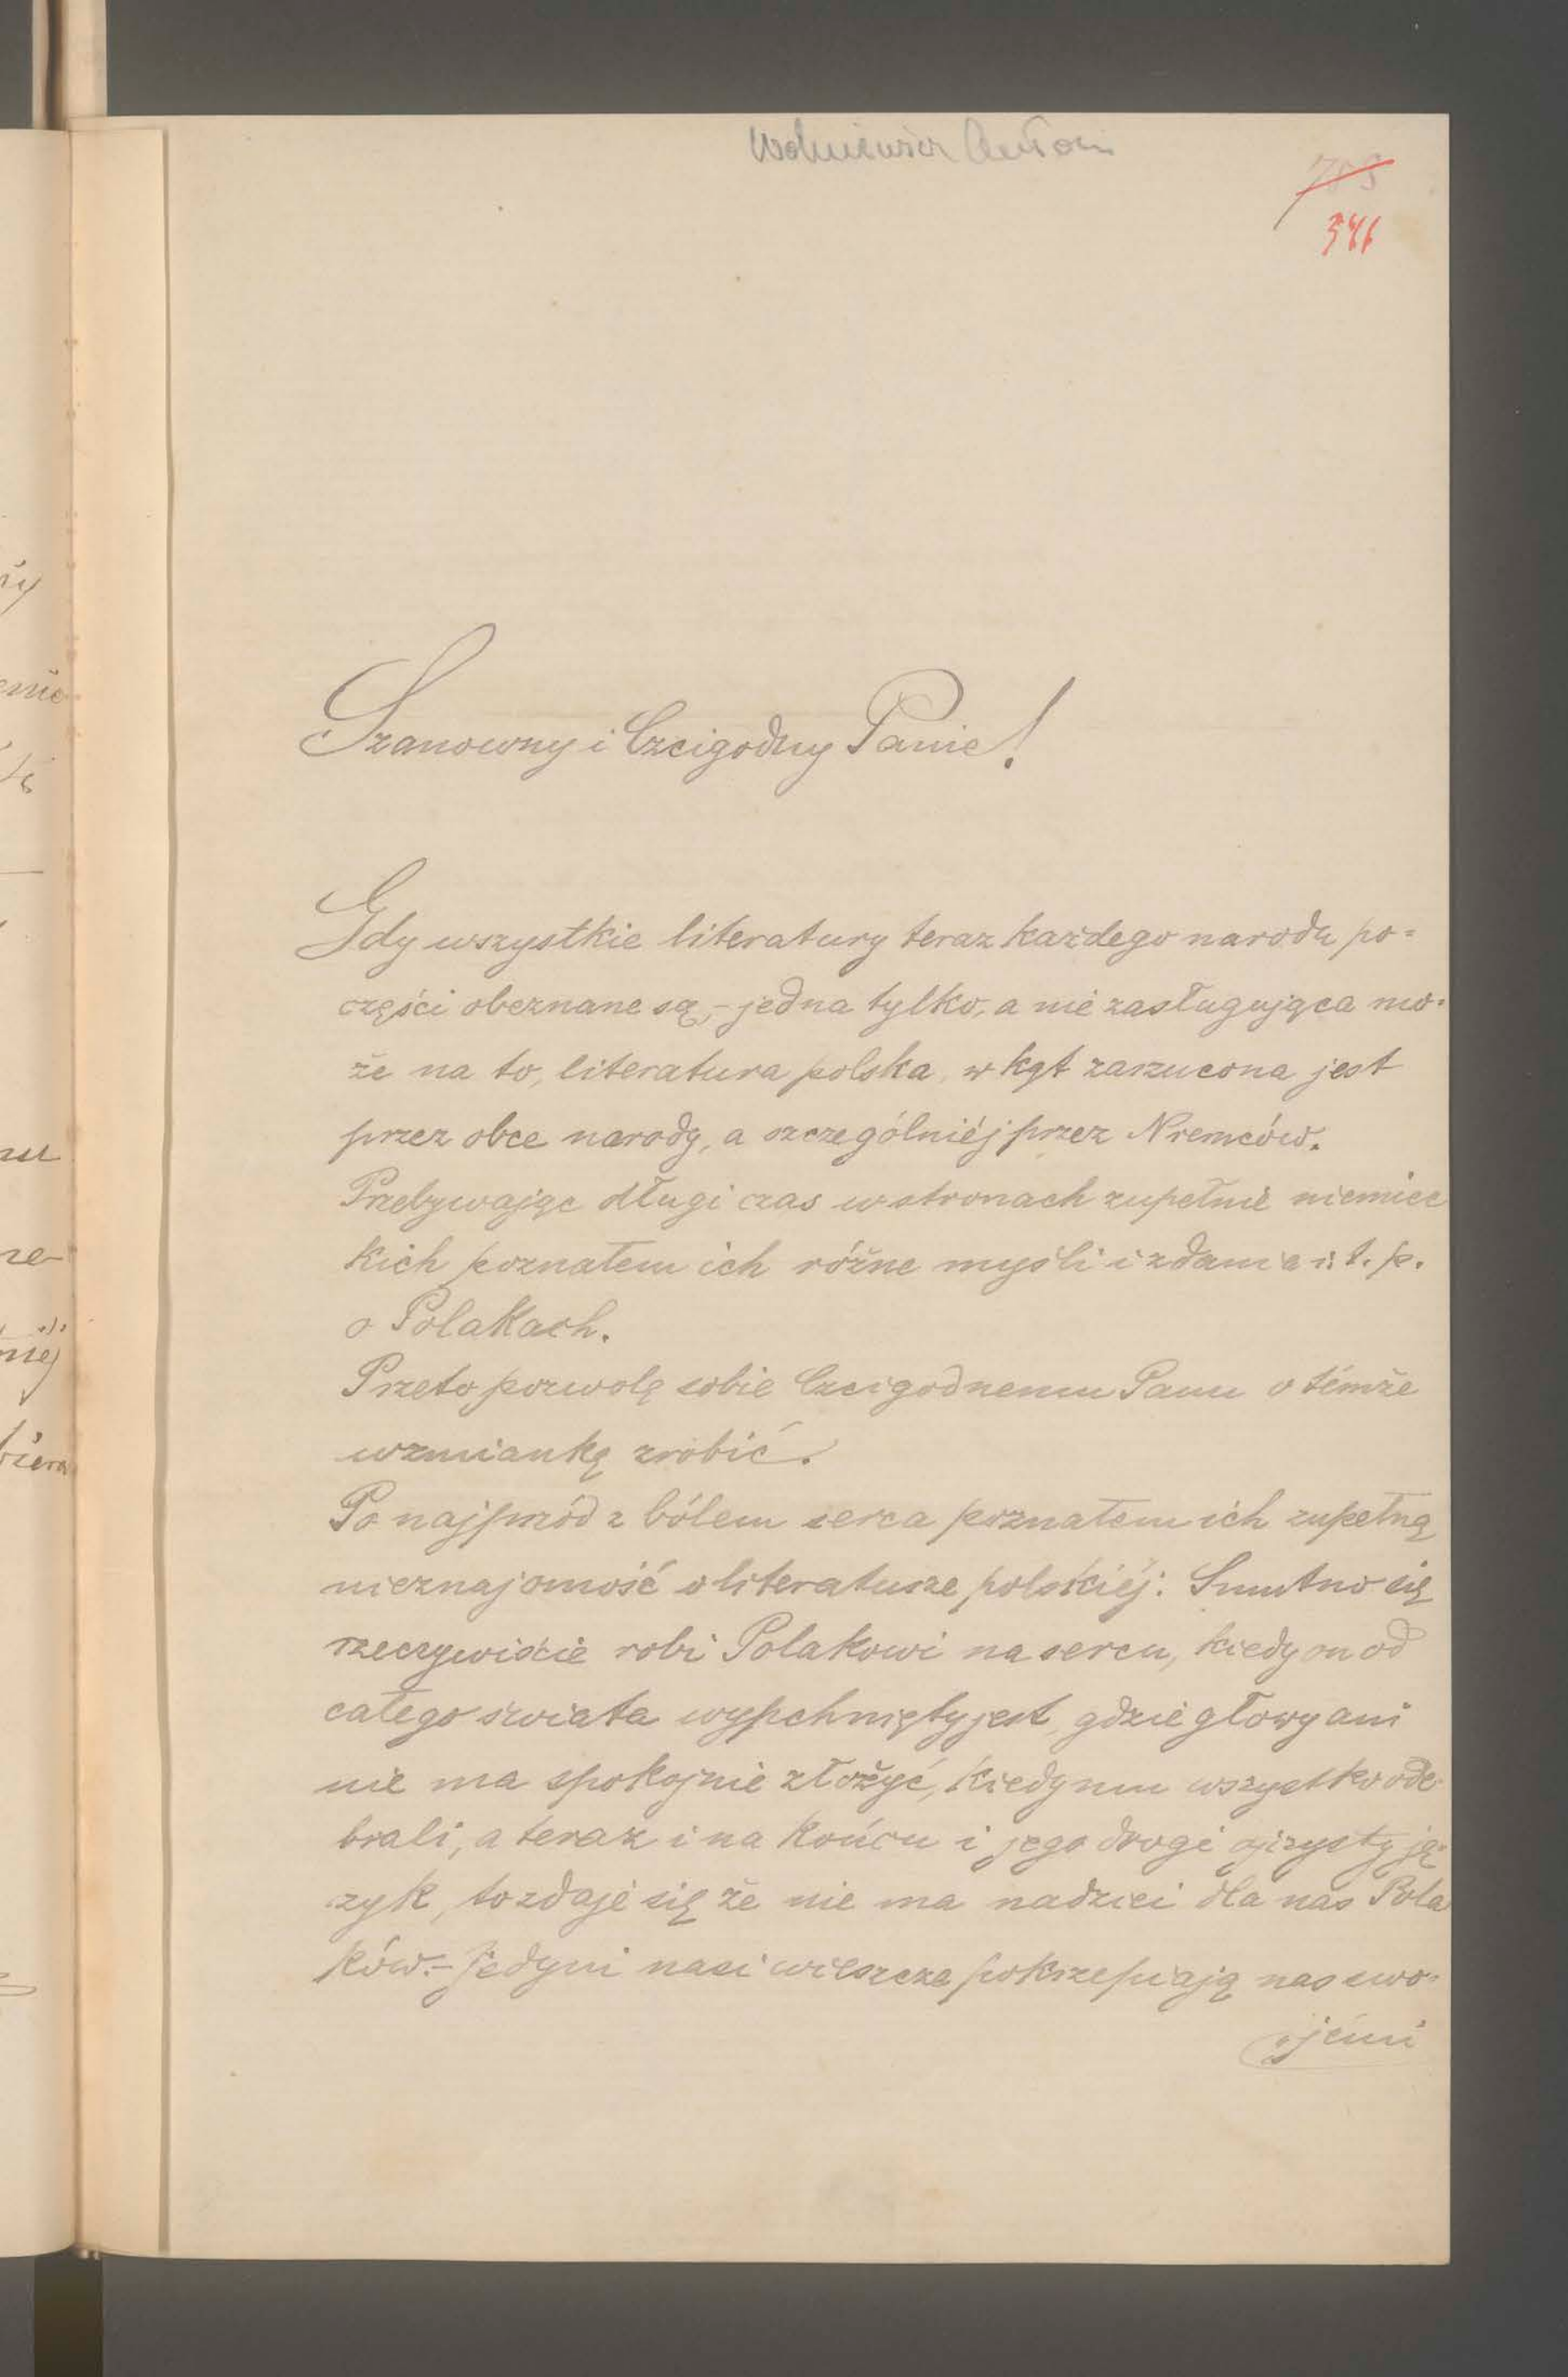 Wolniewicz Antoni
783
Szanowny i Czcigodny Panie!
Gdy wszystkie literatury teraz każdego narodu po=
części obeznane są,- jedna tylko, a nie zasługująca mo=
że na to, literatura polska, w kąt zarzucona jest
przez obce narody, a szczególniéj przez Niemców.
Przebywając długi czas w stronach zupełnie niemiec
kich poznałem ich różne myśli i zdania i t. p.
o Polakach.
Przeto pozwolę sobie Czcigodnemu Panu o témże
wzmiankę zrobić.
Po najprzód z bólem serca poznałem ich zupełną
nieznajomość o literaturze polskiéj: Smutno się
rzeczywiście robi Polakowi na sercu, kiedy on od
całego świata wypchnięty jest, gdzie głowy ani
nie ma spokojnie złożyć, kiedy mu wszystko ode
brali, a teraz i na końcu i jego drogi ojczysty ję=
zyk, to zdaje się że nie ma nadziei dla nas Pola
ków.- Jedyni nasi wieszcze pokrzepiają nas swo=
jémi